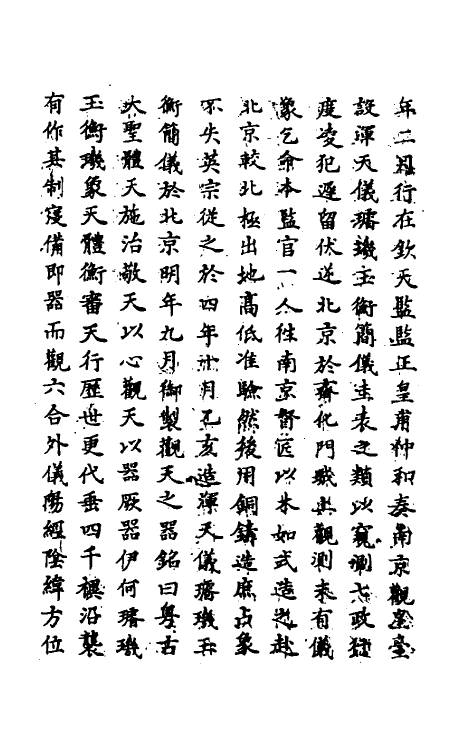 年二月行在欽天監監正皇甫仲和奏南京觀星臺
設渾天儀璿璣玉衡簡儀圭表之類以窺測七政行
度凌犯遲留伏逆北京於齊化門城上觀測未有儀
象乞令本監官一人往南京督匠以木如式造之赴
北京較北極出地高低准驗然後用銅鑄造庶占象
不失英宗從之於四年十月乙亥造渾天儀璿璣玉
衡簡儀於北京明年九月御製觀天之器銘曰粵古
大聖體天施治敬天以心觀天以器厥器伊何璿璣
玉衡璣象天體衡審天行歷世更代垂四千禩沿襲
有作其制寖備即器而觀六合外儀陽經陰緯方位